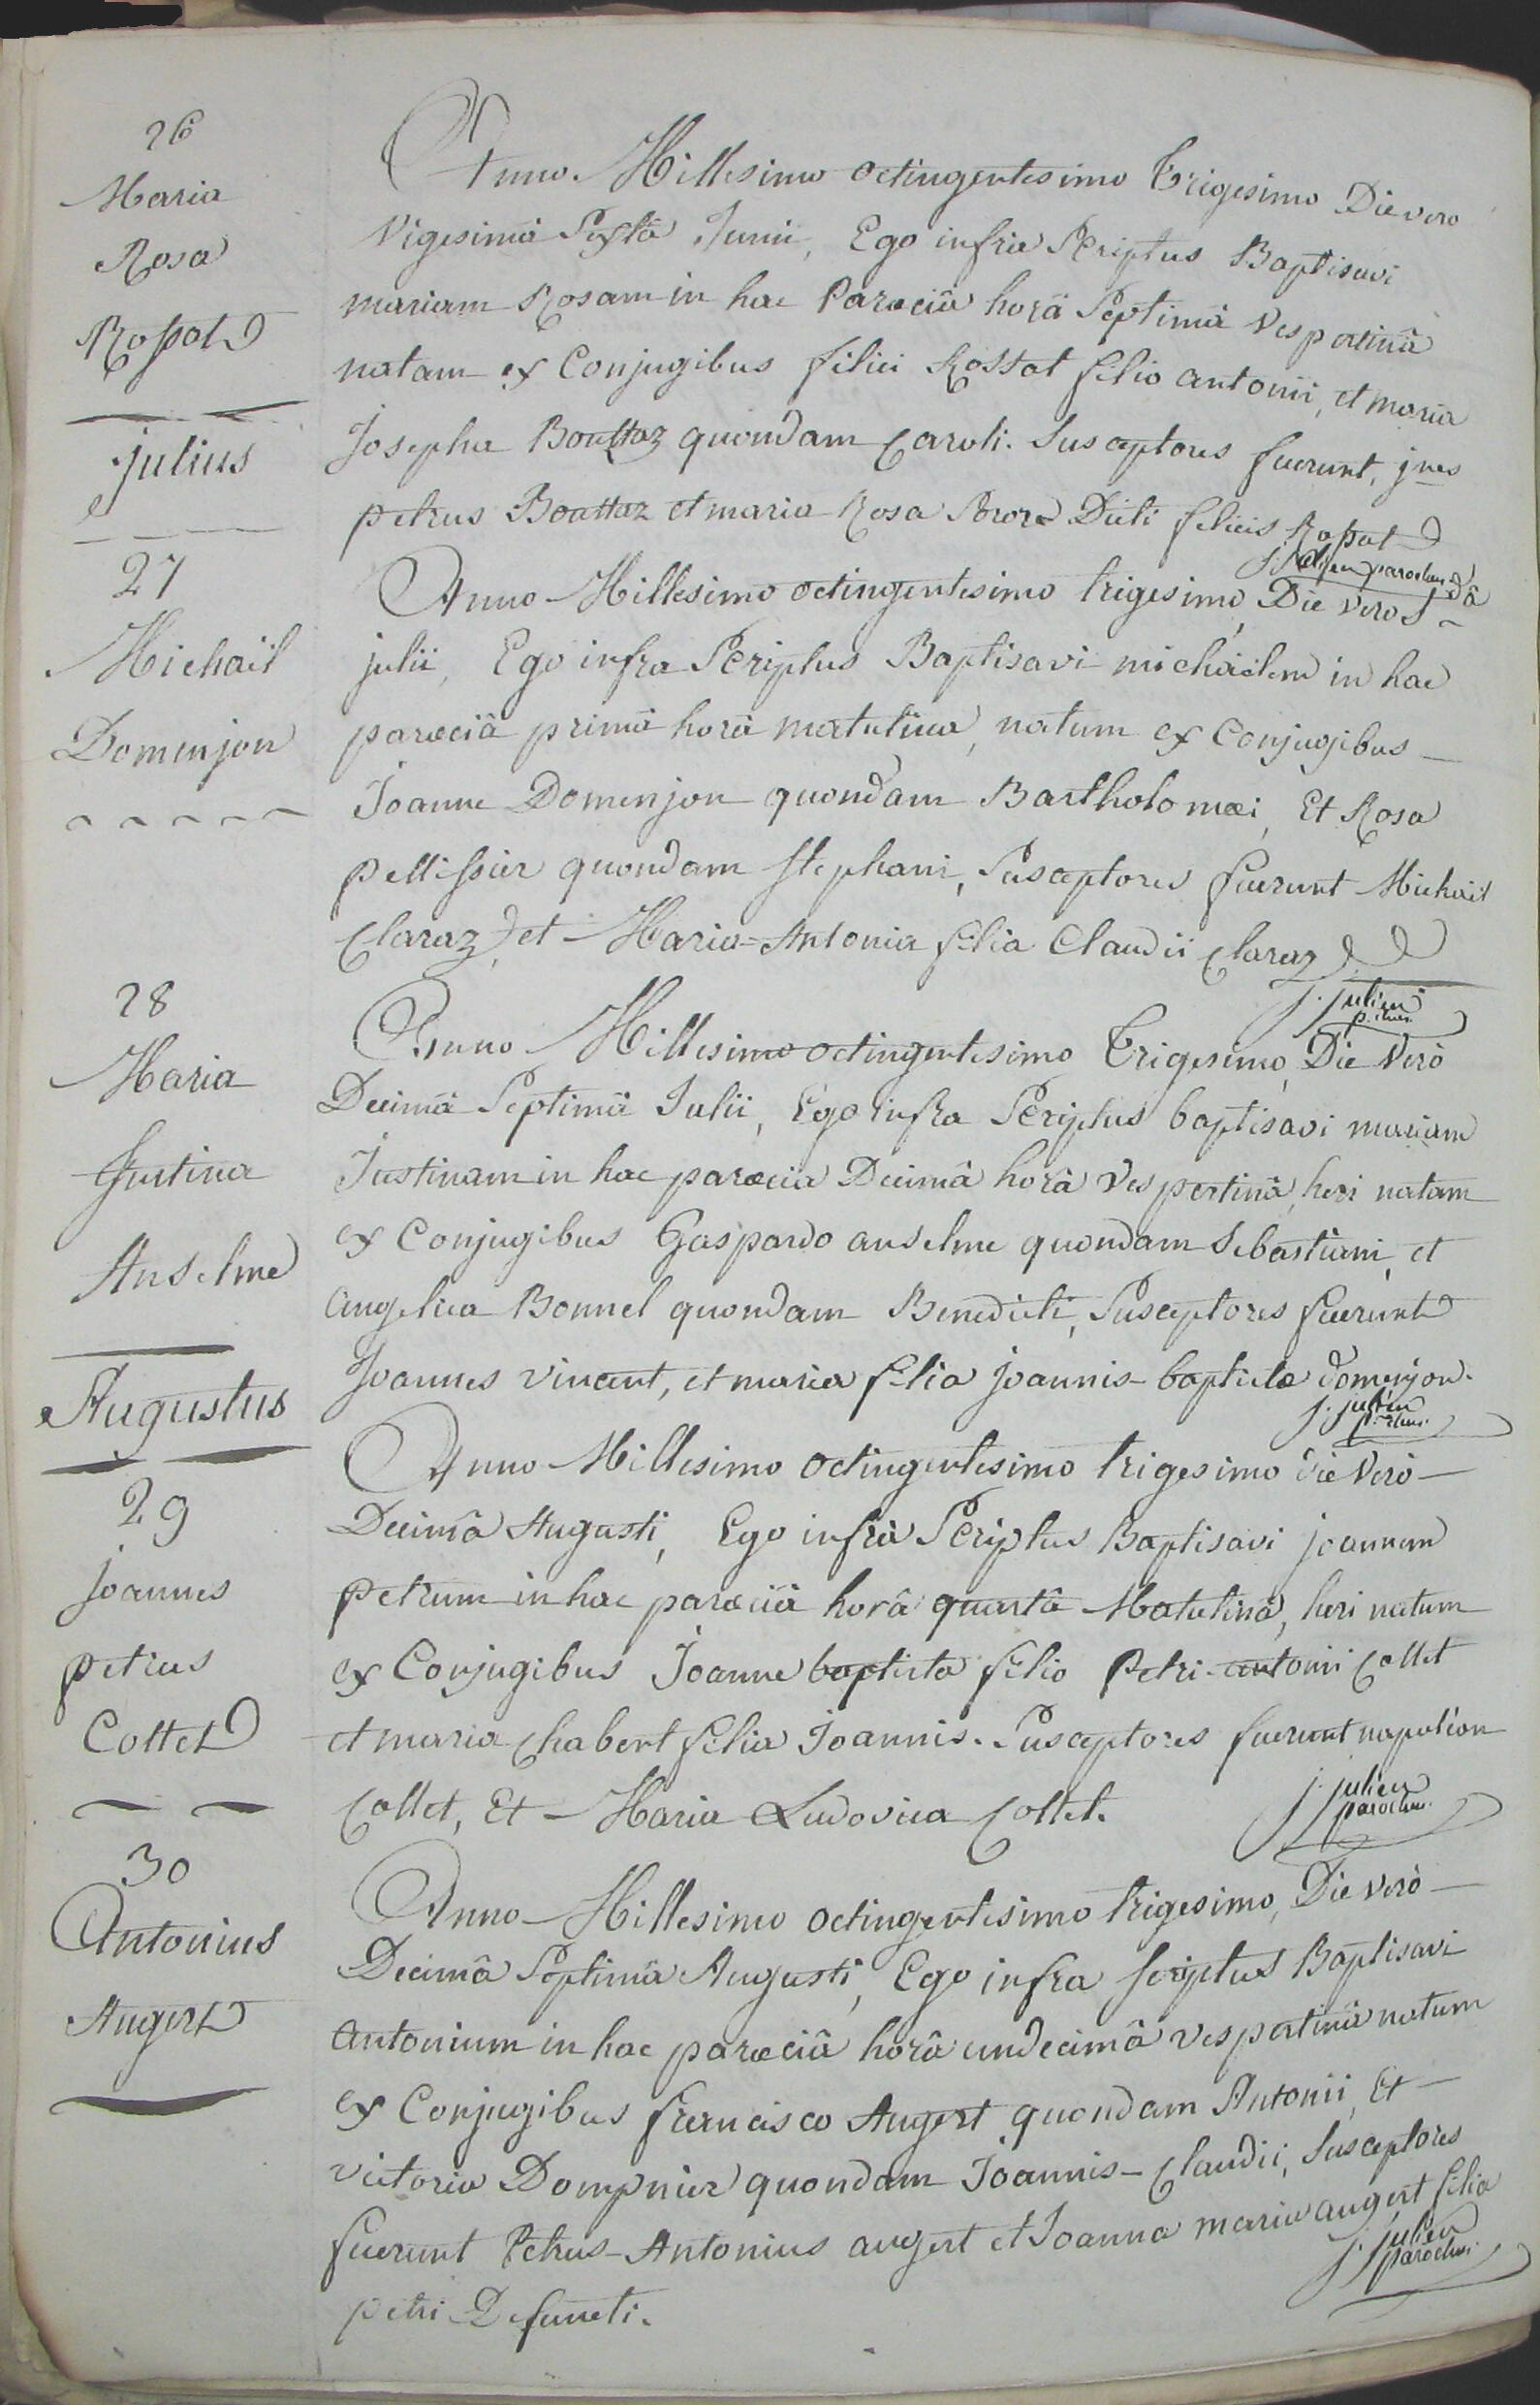 26
Maria
Rosa
Rossat
Anno Millesimo octingentesimo Trigesimo Die vero
Vigesimâ Sextâ Junii, Ego infra Scriptus Baptisavi
mariam Rosam in hac Parœciâ horâ Septimâ Vespertinâ
natam ex Conjugibus felici Rossat filio antonii, et maria
Josepha Bouttaz quondam Caroli. Susceptores fuerunt, jnes
petrus Bouttaz et maria Rosa Soror Dicti felicis Rossat
j. julien parochus
julius
27
Michaël
Domenjon
Anno Millesimo octingentesimo trigesimo, Die vero 1â
julii, Ego infra Scriptus Baptisavi michäelem in hac
parœciâ primâ horâ matutina, natum ex Conjugibus
Joanne Domenjon quondam Bartholomæi, Et Rosa
pellissier quondam Stephani, Susceptores fuerunt Michaël
Claraz, et Maria-Antonia filia Claudii Claraz
j. julien
p.chus.
28
Maria
Justina
Anselme
Anno Millesimo octingentesimo Trigesimo, Die Verò
Decimâ Septimâ Julii, Ego infra Scriptus baptisavi mariam
Justinam in hac parœcia Decimâ horâ Vespertinâ, heri natam
ex Conjugibus Gaspardo anselme quondam Sebastiani, et
angelica Bonnel quondam Benedicti, Susceptores fuerunt
Joannes vincent, et maria filia joannis-baptistæ domenjon.
j. julien
p.chus.
Augustus
29
joannes
petrus
Collet
Anno Millesimo octingentesimo trigesimo die Verò
Decimâ Augusti, Ego infrà Scriptus Baptisavi joannem
petrum in hac parœciâ horâ quartâ Matutinâ, heri natum
ex Conjugibus Joanne baptista filio Petri-antonii Collet
et maria Chabert filia Joannis. Susceptores fuerunt napoléon
Collet, Et Maria Ludovica Collet.
j. julien
parochus.
30
Antonius
Augert
Anno Millesimo octingentesimo trigesimo, Die verò
Decimâ Septimâ Augusti, Ego infra scriptus Baptisavi
antonium in hac parœciâ horâ undecimâ vespertinâ natum
ex Conjugibus francisco Augert quondam Antonii, Et
victoria Dompnier quondam Joannis-Claudii, Susceptores
fuerunt Petrus-Antonius augert et Joanna maria augert filia
petri Defuncti.
j. julien
parochus.